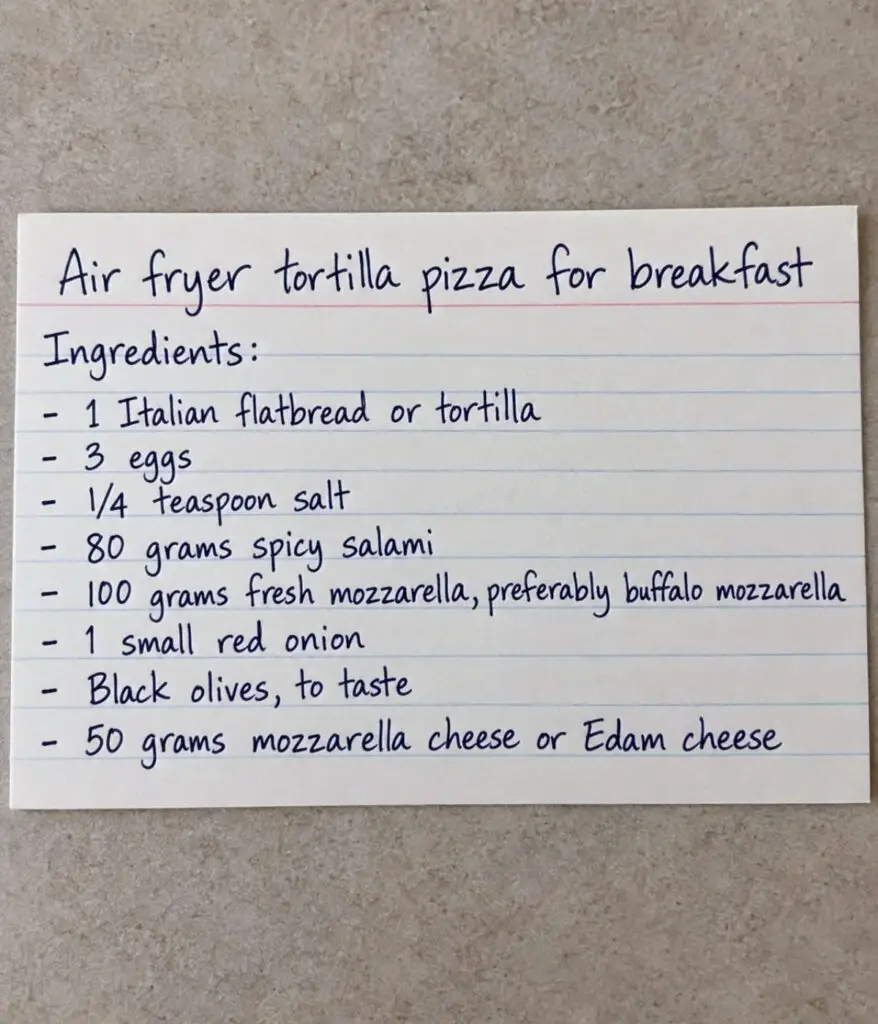 Air fryer tortilla pizza for breakfast
Ingredients:
- 1 Italian flatbread or tortilla
- 3 eggs
- 1/4 teaspoon salt
- 80 grams spicy salami
- 100 grams fresh mozzarella, preferably buffalo mozzarella
- 1 small red onion
- Black olives, to taste
- 50 grams mozzarella cheese or Edam cheese